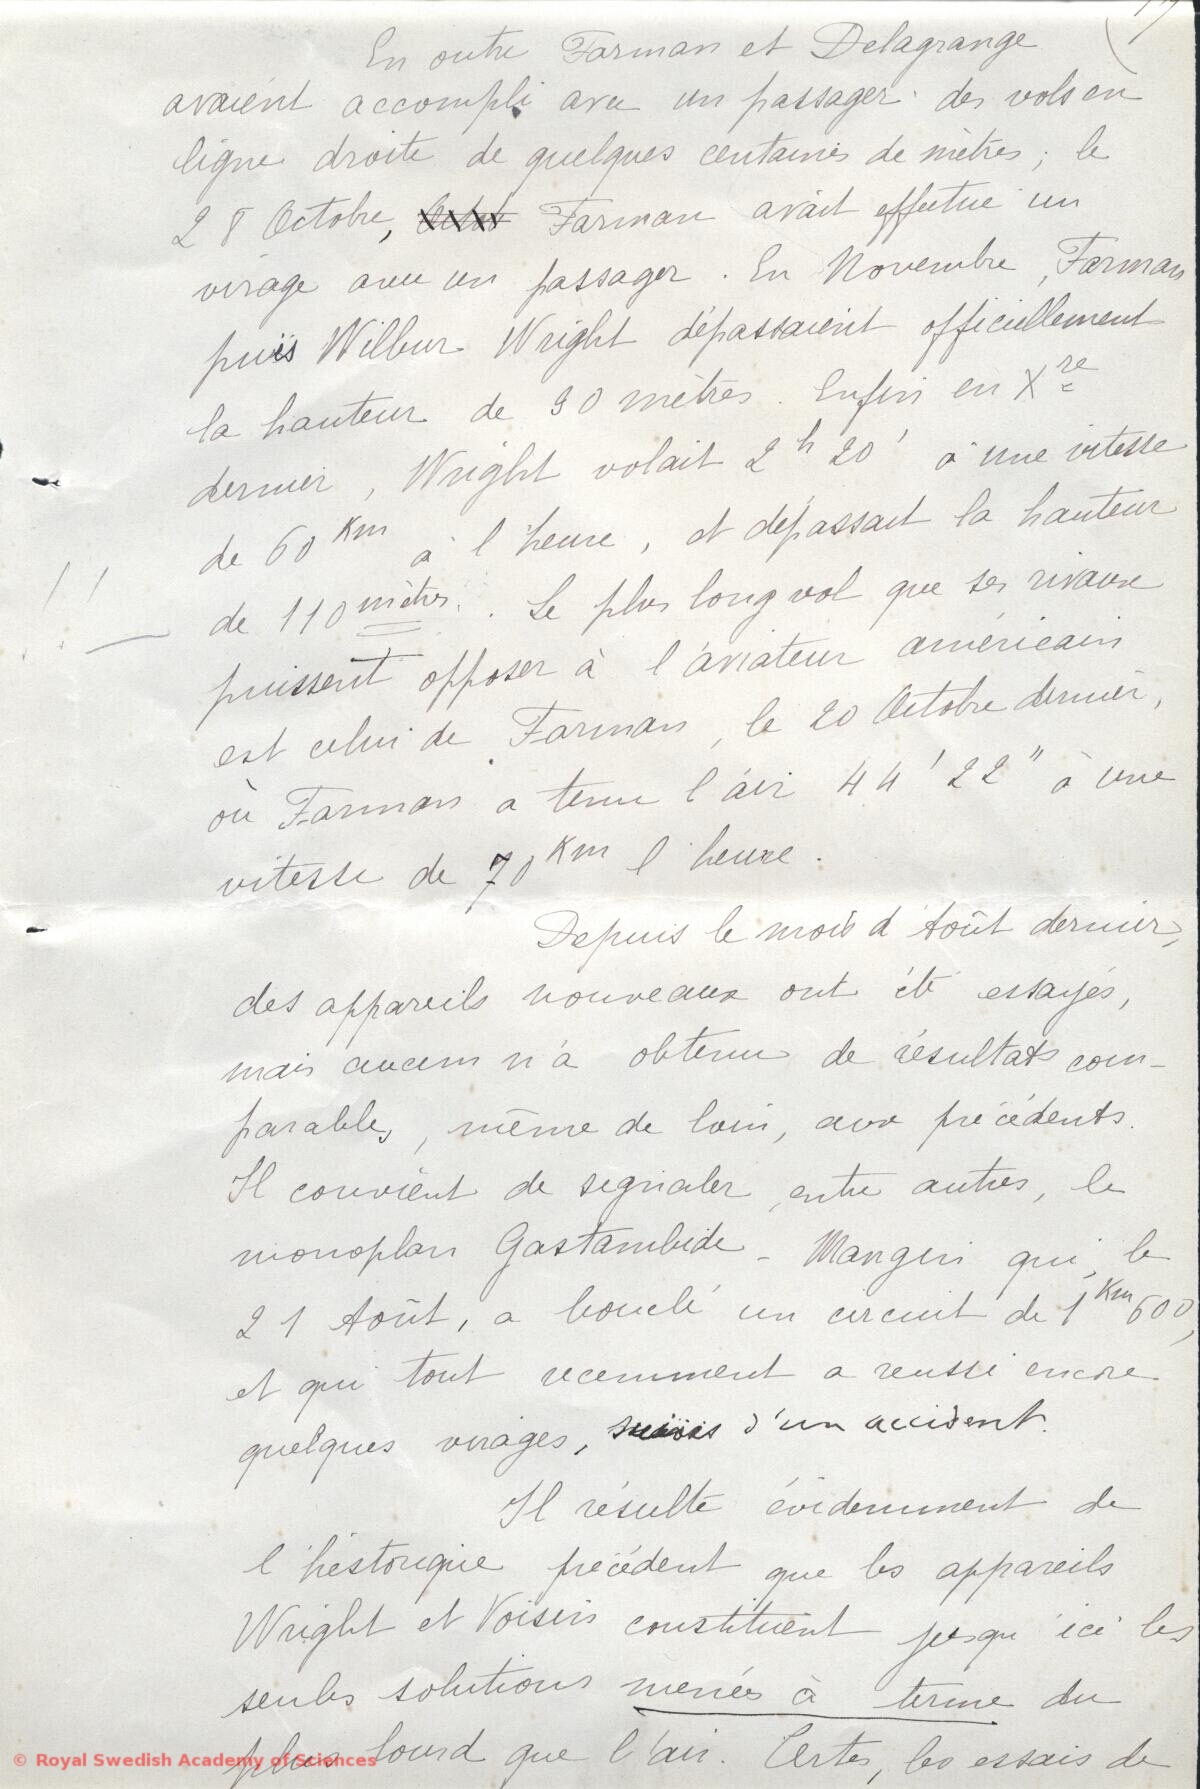 En outre Farman et Delagrange
avaient accompli avec un passager des vols en
ligne droite de quelques centaines de mètres ; le
28 Octobre, Farman avait effectué un
virage avec un passager. En Novembre, Farman
puis Wilbur Wright dépassaient officiellement
la hauteur de 90 mètres. Enfin en Xre
dernier, Wright volait 2h 20' à une vitesse
de 60 Km à l'heure, et dépassait la hauteur
de 110 mètres. Le plus long vol que ses rivaux
puissent opposer à l'aviateur américain
est celui de Farman, le 20 Octobre dernier,
où Farman a tenu l'air 44' 22" à une
vitesse de 70 Km l'heure.
Depuis le mois d'Août dernier,
des appareils nouveaux ont été essayés,
mais aucun n'a obtenu de résultats com-
parables, même de loin, aux précédents.
Il convient de signaler, entre autres, le
monoplan Gastambide - Mangin qui, le
21 Août, a bouclé un circuit de 1 Km 600,
et qui tout recemment a reussi encore
quelques virages, suivis d'un accident.
Il résulte évidemment de
l'historique précédent que les appareils
Wright et Voisin constituent jusqu'ici les
seules solutions menées à terme du
plus lourd que l'air. Certes, les essais de
© Royal Swedish Academy of Sciences